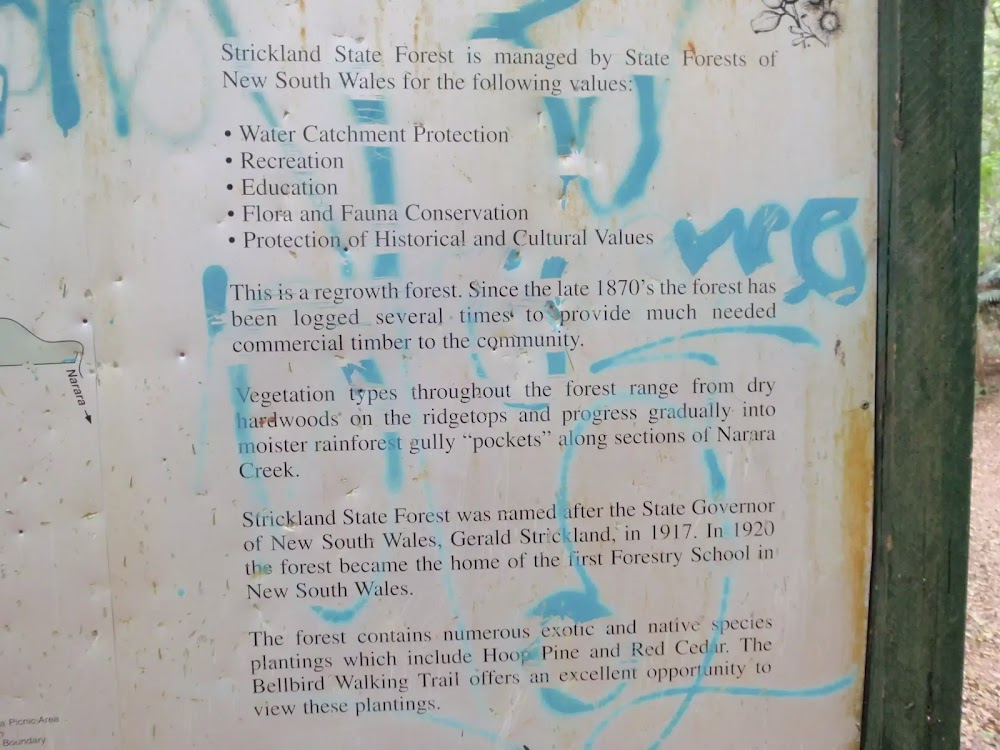 Strickland State Forest is managed by State Forests of
New South Wales for the following values:
• Water Catchment Protection
• Recreation
• Education
• Flora and Fauna Conservation
• Protection of Historical and Cultural Values
This is a regrowth forest. Since the late 1870's the forest has
been logged several times to provide much needed
commercial timber to the community.
Narara
Vegetation types throughout the forest range from dry
hardwoods on the ridgetops and progress gradually into
moister rainforest gully “pockets” along sections of Narara
Creek.
Strickland State Forest was named after the State Governor
of New South Wales, Gerald Strickland, in 1917. In 1920
the forest became the home of the first Forestry School in
New South Wales.
The forest contains numerous exotic and native species
plantings which include Hoop Pine and Red Cedar. The
Bellbird Walking Trail offers an excellent opportunity to
view these plantings.
Picnic Area
Boundary